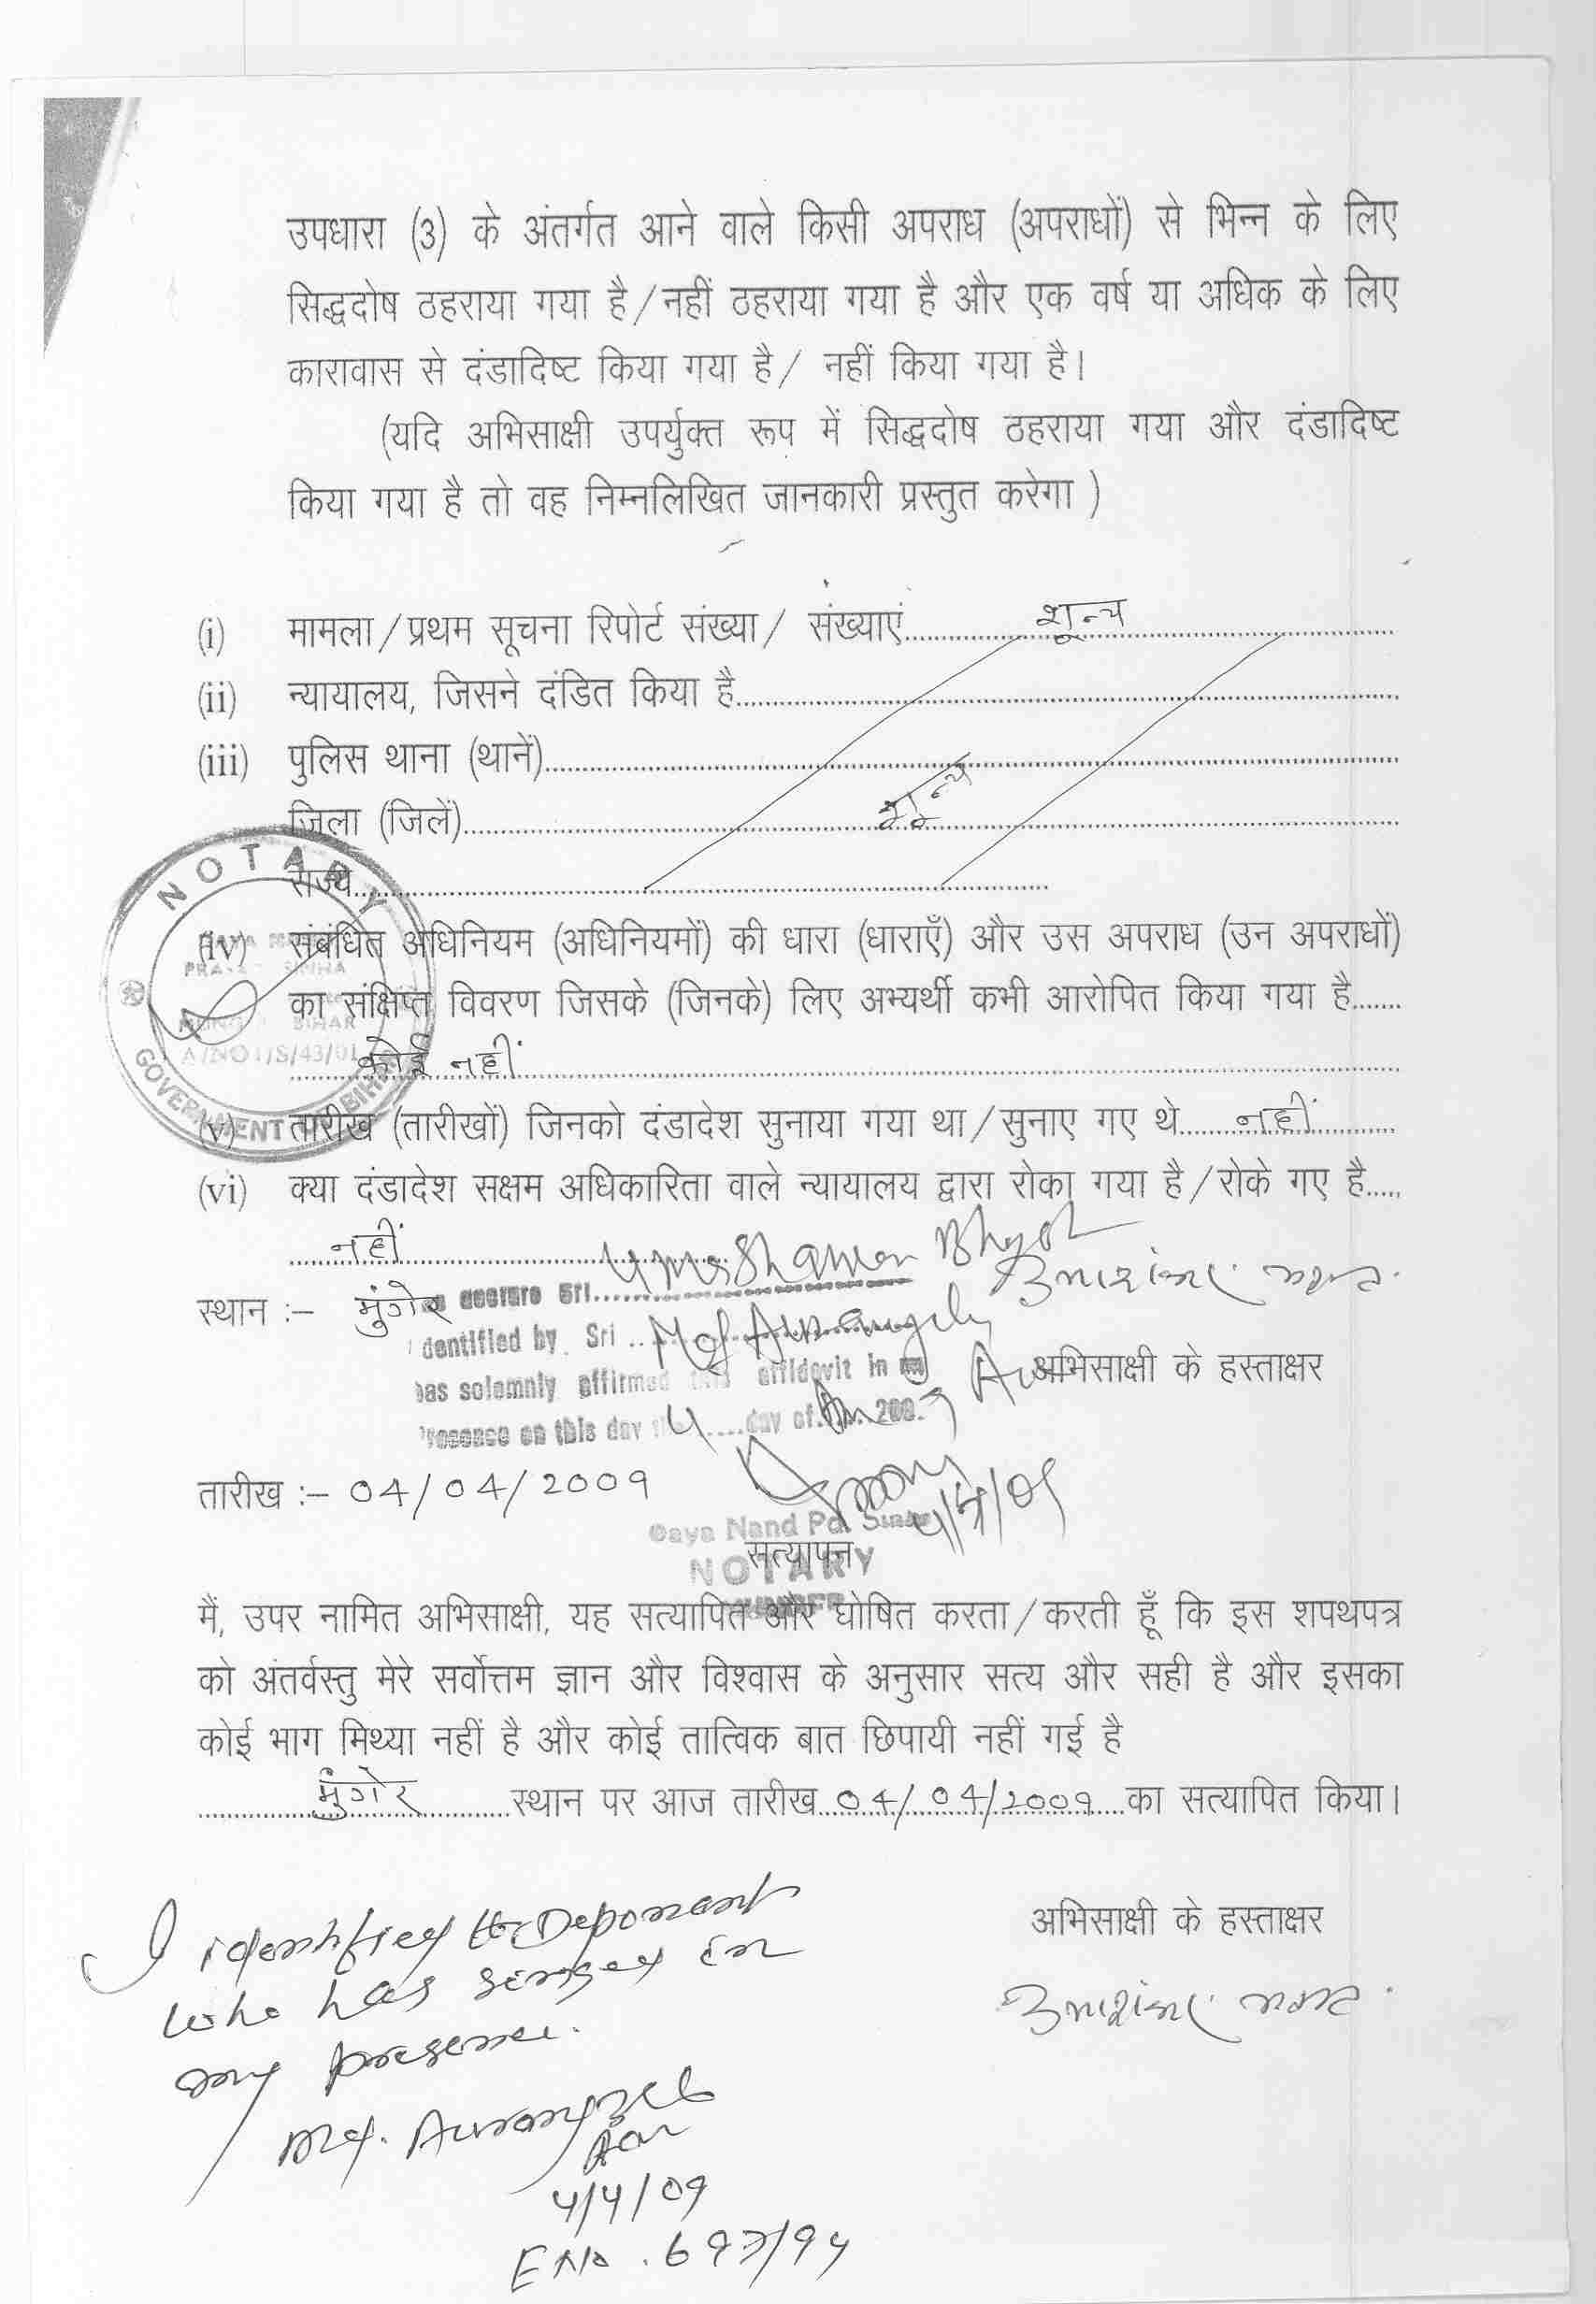 उपधारा (3) के अंतर्गत आने वाले किसी अपराध (अपराधों) से भिन्न के लिए
सिद्धदोष ठहराया गया है/नहीं ठहराया गया है और एक वर्ष या अधिक के लिए
कारावास से दंडादिष्ट किया गया है/ नहीं किया गया है।
(यदि अभिसाक्षी उपर्युक्त रूप में सिद्धदोष ठहराया गया और दंडादिष्ट
किया गया है तो वह निम्नलिखित जानकारी प्रस्तुत करेगा )
(i) मामला/प्रथम सूचना रिपोर्ट संख्या/ संख्याएं शून्य
(ii) न्यायालय, जिसने दंडित किया है
(iii) पुलिस थाना (थानें)
जिला (जिलें) शून्य
राज्य
NOTARY
(iv) संबंधित अधिनियम (अधिनियमों) की धारा (धाराएँ) और उस अपराध (उन अपराधों)
का संक्षिप्त विवरण जिसके (जिनके) लिए अभ्यर्थी कभी आरोपित किया गया है
BIHAR
कोई नहीं
GOVERNMENT OF BIHAR
(v) तारीख (तारीखों) जिनको दंडादेश सुनाया गया था/सुनाए गए थे नहीं
(vi) क्या दंडादेश सक्षम अधिकारिता वाले न्यायालय द्वारा रोका गया है/रोके गए है
नहीं
स्थान :- मुंगेर
dentified by Sri
has solemnly affirmed this affidavit in
अभिसाक्षी के हस्ताक्षर
on this day 4 day of 2009
तारीख :- 04/04/2009
4/4/09
Nand Pd.
सत्यापन
NOTARY
मैं, उपर नामित अभिसाक्षी, यह सत्यापित और घोषित करता/करती हूँ कि इस शपथपत्र
को अंतर्वस्तु मेरे सर्वोत्तम ज्ञान और विश्वास के अनुसार सत्य और सही है और इसका
कोई भाग मिथ्या नहीं है और कोई तात्विक बात छिपायी नहीं गई है
मुंगेर स्थान पर आज तारीख 04/04/2009 का सत्यापित किया।
अभिसाक्षी के हस्ताक्षर
I identified the Deponent
who has singed in
my presence.
Md. Aurangzeb
4/4/09